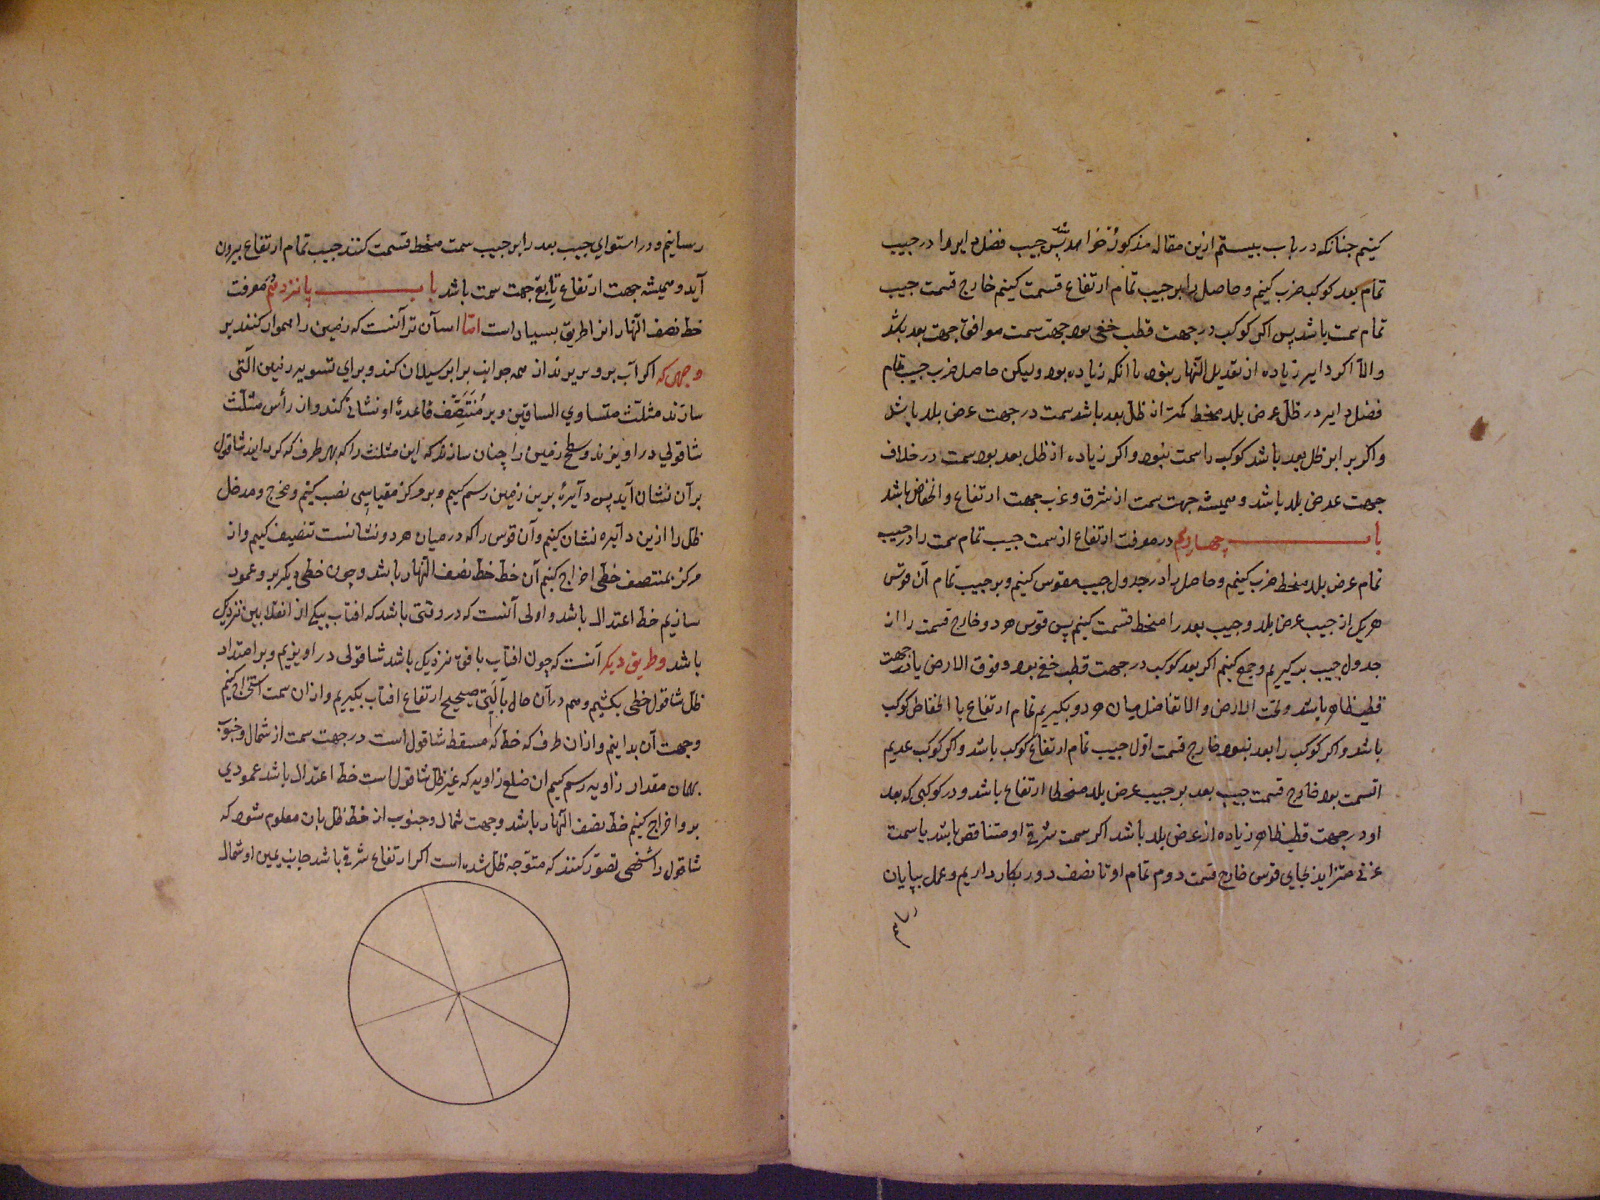 کنیم چنانکه در باب بیستم ازین مقاله مذکور خواهد شد پس جیب فضل دایر را در جیب
تمام بعد کوکب ضرب کنیم و حاصل را بر جیب تمام ارتفاع قسمت کنیم خارج قسمت جیب
تمام سمت باشد پس اگر کوکب در جهت قطب خفی بود جهت سمت موافق جهت بعد باشد
والا اگر دایر زیاده از تعدیل النهار بنود یا انکه زیاده بود ولیکن حاصل ضرب جیب تمام
فضل دایر در ظل عرض بلد منحط کمتر از ظل بعد باشد سمت در جهت عرض بلد باشد
و اگر برابر ظل بعد باشد کوکب را سمت نبود و اگر زیاده از ظل بعد بود سمت در خلاف
جهت عرض بلد باشد و همیشه جهت سمت از شرق و غرب جهت ارتفاع و انخفاض باشد
باب چهاردهم در معرفت ارتفاع از سمت جیب تمام سمت را در جیب
تمام عرض بلد منحط ضرب کنیم و حاصل را در جدول جیب مقوس کنیم و بر جیب تمام آن قوس
هر یک از جیب عرض بلد و جیب بعد را منحط قسمت کنیم پس قوس هر دو خارج قسمت را از
جدول جیب برگیریم و جمع کنیم اگر بعد کوکب در جهت قطب خفی بود و فوق الارض یا در جهت
قطب ظاهر باشد و تحت الارض والا تفاضل میان هر دو بگیریم تمام ارتفاع یا انخفاض کوکب
باشد و اگر کوکب را بعد نبود خارج قسمت اول جیب تمام ارتفاع کوکب باشد و اگر کوکب عدیم
السمت بود خارج قسمت جیب بعد بر جیب عرض بلد منحطا ارتفاع باشد و در کوکبی که بعد
او در جهت قطب ظاهر زیاده از عرض بلد باشد اگر سمت شرقی او متناقص باشد یا سمت
غربی متزاید بجای قوس خارج قسمت دوم تمام او تا نصف دور بکار داریم و عمل بپایان
رسانیم و در استوای جیب بعد را بر جیب سمت منحط قسمت کنند جیب تمام ارتفاع بیرون
آید و همیشه جهت ارتفاع تابع جهت سمت باشد باب پانزدهم معرفت
خط نصف النهار انرا طریق بسیار است امّا اسان تر آنست که زمین را هموار کنند بر
وجهی که اگر آب برو بریزند از همه جوانب برابر سیلان کند و برای تسویه زمین آلتی
سازند مثلث متساوی الساقین و بر مُنتصف قاعدهٔ او نشانی کنند و از رأس مثلث
شاقولی در اویزند و سطح زمین را چنان سازند که این مثلث را که بهر طرف که گردانند شاقول
بر آن نشان آید پس دآیرهٔ برین زمین رسم کنیم و بر مرکز مقیاسی نصب کنیم و مخرج و مدخل
ظل را ازین دآیره نشان کنیم و آن قوس را که در میان هر دو نشانست تنصیف کنیم و از
مرکز بمنتصف خطی اخراج کنیم آن خط خط نصف النهار باشد و چون خطی دیگر برو عمود
سازیم خط اعتدال باشد و اولی آنست که در وقتی باشد که افتاب بیکی از انقلابین نزدیک
باشد وطریق دیگر آنست که چون افتاب بافق نزدیک باشد شاقولی در اویزیم و بر امتداد
ظل شاقول خطی بکشیم و هم در آن حال بآلتی صحیح ارتفاع افتاب بگیریم و از ان سمت استخراج کنیم
و جهت آن بدانیم و از ان طرف که خط که مسقط شاقول است در جهت سمت از شمال و جنوب
بهمان مقدار زاویه رسم کنیم ان ضلع زاویه که غیر ظل شاقول است خط اعتدال باشد عمودی
برو اخراج کنیم خط نصف النهار باشد و جهت شمال و جنوب از خط ظل بان معلوم شود که
شاقول را شخصی تصوّر کنند که متوجّه ظل شده است اگر ارتفاع شرقی باشد جانب یمین او شمال